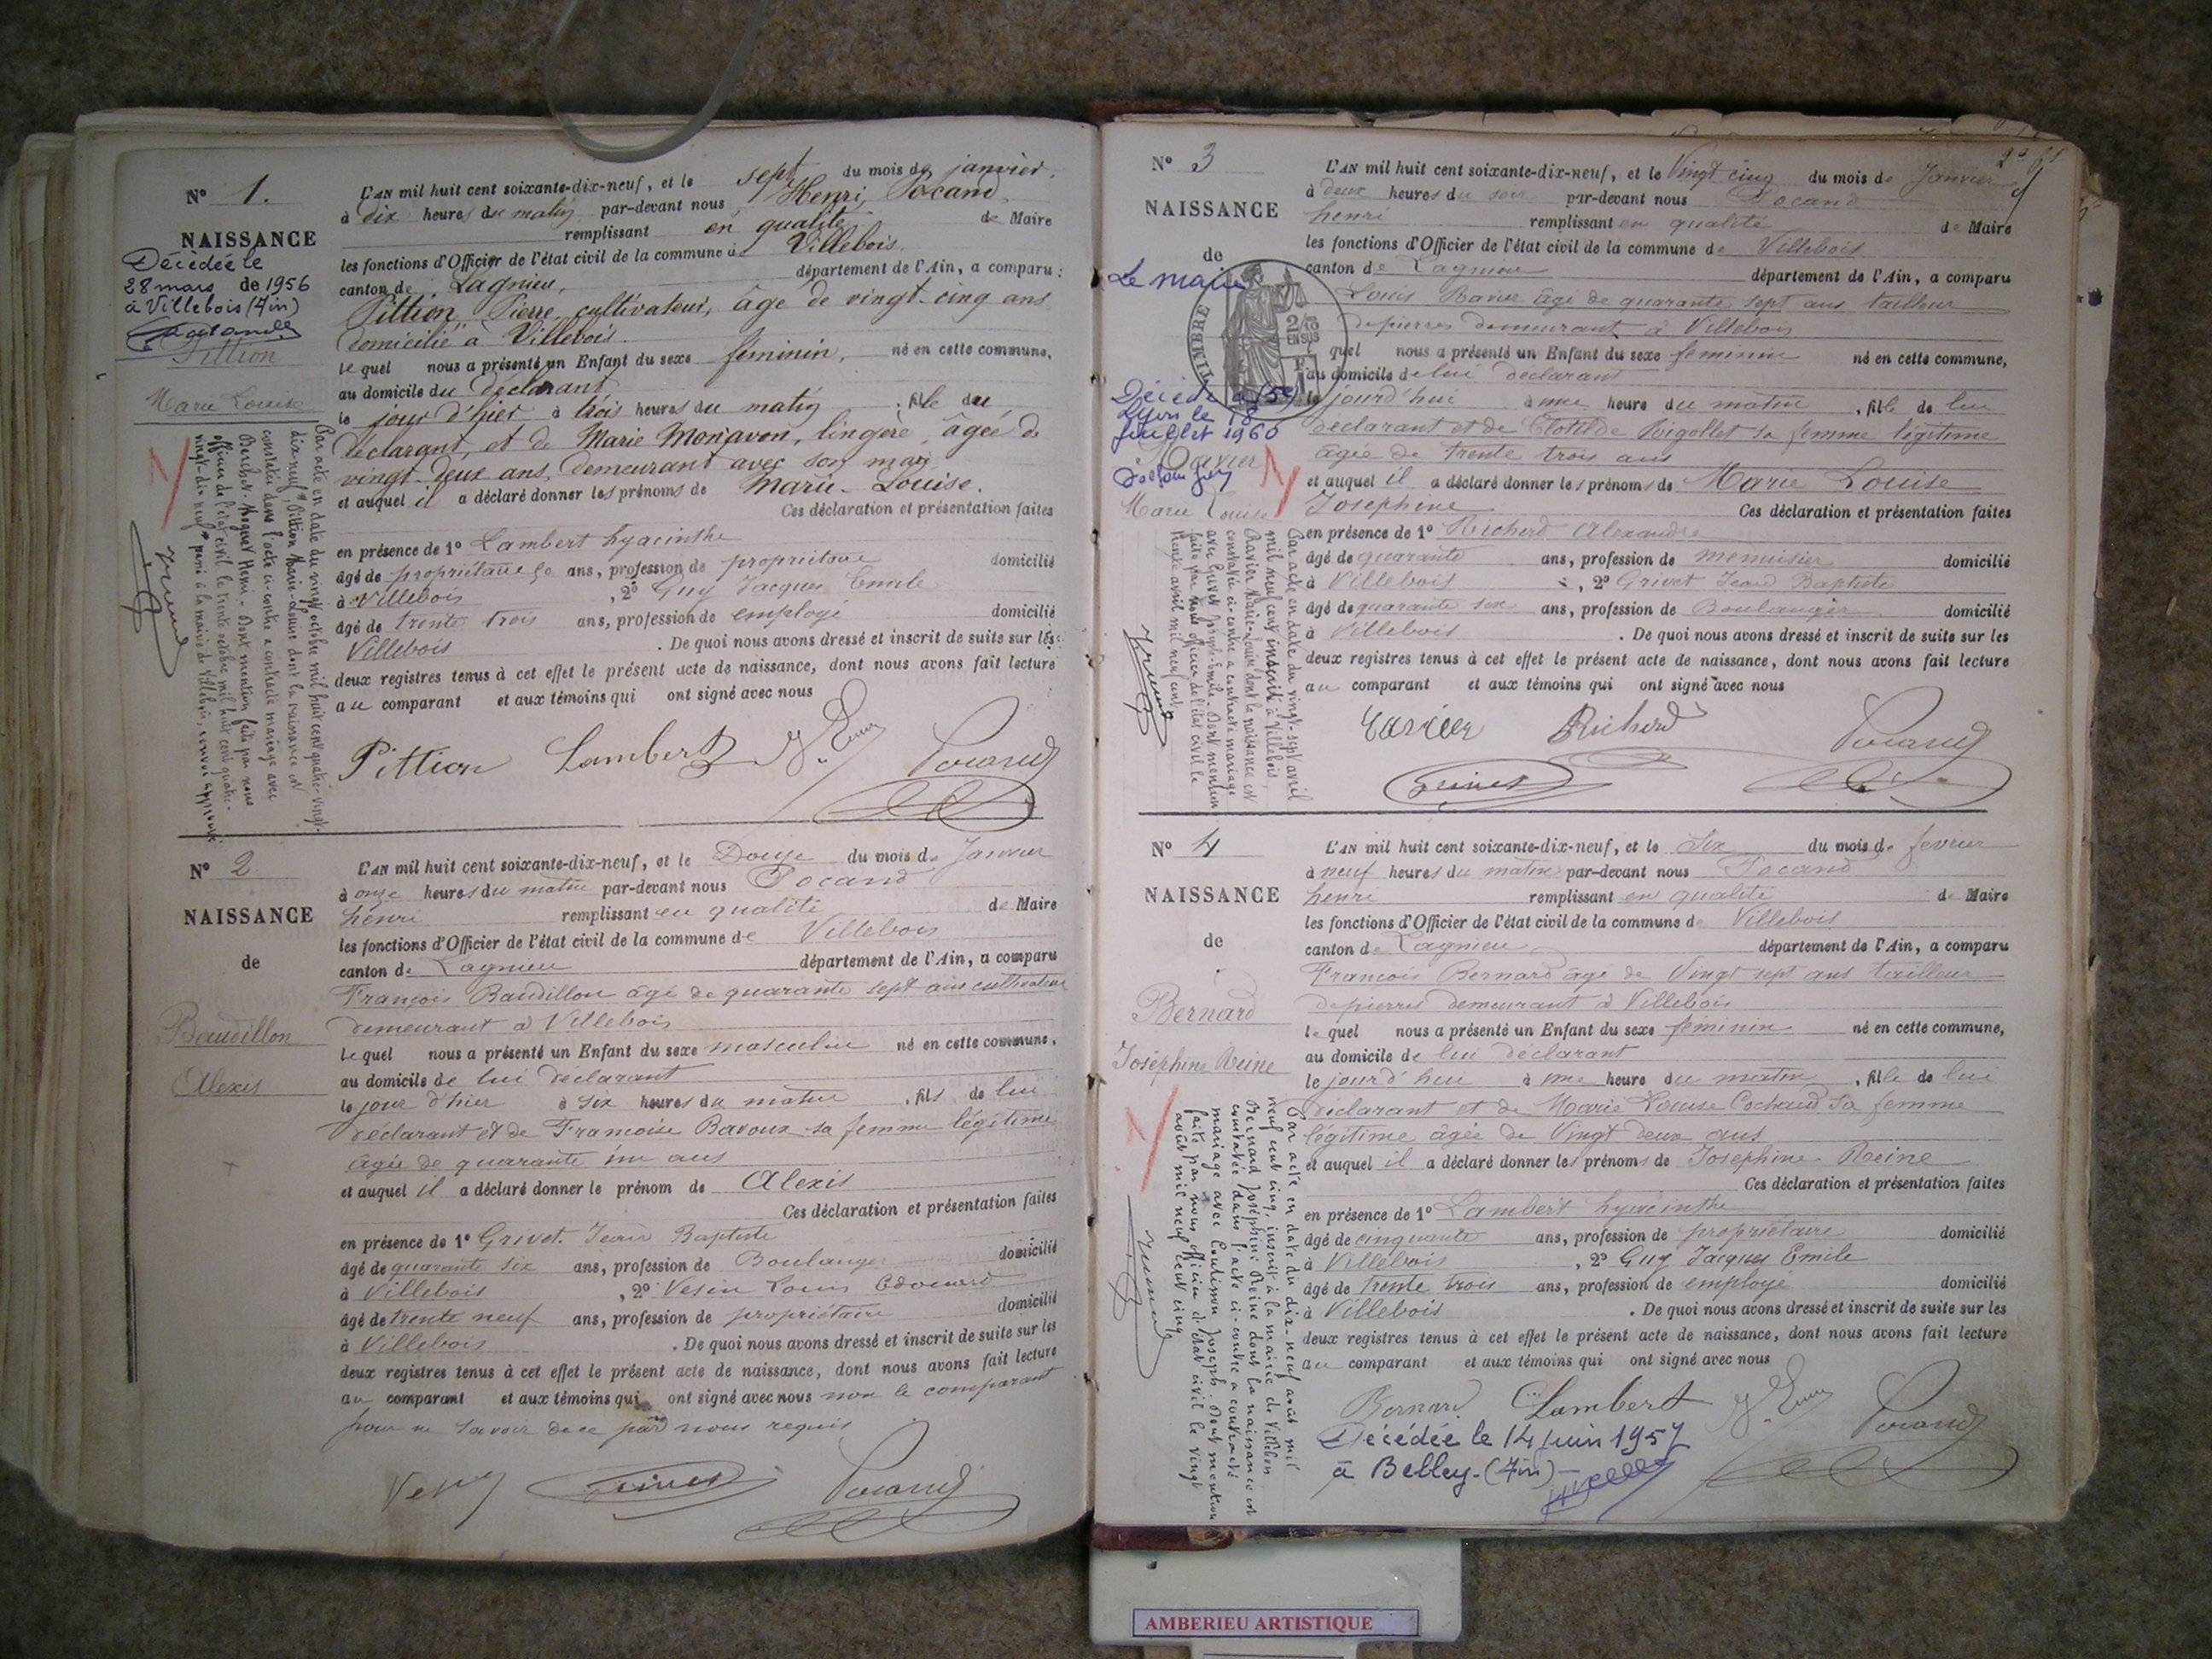 N° 1.
NAISSANCE
Décédée le
28 mars de 1956
à Villebois (Ain)
Pittion
Marie Louise
L'AN mil huit cent soixante-dix-neuf, et le sept du mois de janvier.
à dix heures du matin par-devant nous Henri, Pocand
remplissant en qualité de Maire
les fonctions d'Officier de l'état civil de la commune de Villebois.
canton de Lagnieu, département de l'Ain, a comparu :
Pittion Pierre, cultivateur, âgé de vingt-cinq ans
domicilié à Villebois.
lequel nous a présenté un Enfant du sexe féminin, né en cette commune,
au domicile du déclarant
le jour d'hier à trois heures du matin, fille du
déclarant, et de Marie Monavon, lingère, âgée de
vingt-deux ans, demeurant avec son mari
et auquel il a déclaré donner les prénoms de Marie-Louise.
Ces déclaration et présentation faites
en présence de 1° Lambert hyacinthe
âgé de propriétaire 50 ans, profession de propriétaire domicilié
à Villebois, 2° Guy Jacques Emile
âgé de trente trois ans, profession de employé domicilié
Villebois. De quoi nous avons dressé et inscrit de suite sur les
deux registres tenus à cet effet le présent acte de naissance, dont nous avons fait lecture
au comparant et aux témoins qui ont signé avec nous
Par acte en date du vingt octobre mil huit cent quatre-vingt-
dix-neuf, Pittion Marie-Louise dont la naissance est
constatée dans l'acte ci-contre a contracté mariage avec
Henri. Dont mention faite par nous
officier de l'état civil le trente octobre mil huit cent quatre-
vingt-dix-neuf
Pittion Lambert Pocand
N° 2
NAISSANCE
de
Baudillon
Alexis
L'AN mil huit cent soixante-dix-neuf, et le Douze du mois de Janvier
à onze heures du matin par-devant nous Pocand
henri remplissant en qualité de Maire
les fonctions d'Officier de l'état civil de la commune de Villebois
canton de Lagnieu département de l'Ain, a comparu
François Baudillon âgé de quarante sept ans cultivateur
demeurant à Villebois
lequel nous a présenté un Enfant du sexe masculin né en cette commune,
au domicile de lui déclarant
le jour d'hier à six heures du matin, fils de lui
déclarant et de Francoise Ravoux sa femme légitime
âgée de quarante un ans
et auquel il a déclaré donner le prénom de Alexis
Ces déclaration et présentation faites
en présence de 1° Grivet Jean Baptiste
âgé de quarante six ans, profession de Boulanger domicilié
à Villebois, 2° Vesin Louis Edouard
âgé de trente neuf ans, profession de propriétaire domicilié
à Villebois. De quoi nous avons dressé et inscrit de suite sur les
deux registres tenus à cet effet le présent acte de naissance, dont nous avons fait lecture
au comparant et aux témoins qui ont signé avec nous non le comparant
pour ne savoir de ce par nous requis
Vesin Grivet Pocand
N° 3
NAISSANCE
de
Le maire
TIMBRE
Décédée à
Lyon le 8
juillet 1960
Ravier
Marie Louise
L'AN mil huit cent soixante-dix-neuf, et le Vingt cinq du mois de Janvier
à deux heures du soir par-devant nous Pocand
henri remplissant en qualité de Maire
les fonctions d'Officier de l'état civil de la commune de Villebois
canton de Lagnieu département de l'Ain, a comparu
Louis Ravier âgé de quarante sept ans tailleur
de pierres demeurant à Villebois
quel nous a présenté un Enfant du sexe féminin né en cette commune,
au domicile de lui déclarant
le jourd'hui à une heure du matin, fille de lui
déclarant et de Clotilde Rigollet sa femme légitime
âgée de trente trois ans
et auquel il a déclaré donner les prénoms de Marie Louise
Joséphine Ces déclaration et présentation faites
en présence de 1° Richerd Alexandre
âgé de quarante ans, profession de menuisier domicilié
à Villebois, 2° Grivet Jean Baptiste
âgé de quarante six ans, profession de Boulanger domicilié
à Villebois. De quoi nous avons dressé et inscrit de suite sur les
deux registres tenus à cet effet le présent acte de naissance, dont nous avons fait lecture
au comparant et aux témoins qui ont signé avec nous
Par acte en date du vingt-sept avril
mil neuf cent inscrit à Villebois,
Ravier Marie-Louise dont la naissance est
constatée ci-contre a contracté mariage
avec Dont mention
faite par nous officier de l'état civil le
trente avril mil neuf cent
Ravier Richerd Pocand
Grivet
N° 4
NAISSANCE
de
Bernard
Joséphine Reine
L'AN mil huit cent soixante-dix-neuf, et le Six du mois de fevrier
à neuf heures du matin par-devant nous Pocand
henri remplissant en qualité de Maire
les fonctions d'Officier de l'état civil de la commune de Villebois
canton de Lagnieu département de l'Ain, a comparu
François Bernard âgé de Vingt sept ans tailleur
de pierres demeurant à Villebois
lequel nous a présenté un Enfant du sexe féminin né en cette commune,
au domicile de lui déclarant
le jourd'hui à une heure du matin, fille de lui
déclarant et de Marie Louise Cochaud sa femme
légitime âgée de Vingt deux ans
et auquel il a déclaré donner les prénoms de Joséphine Reine
Ces déclaration et présentation faites
en présence de 1° Lambert hyacinthe
âgé de cinquante ans, profession de propriétaire domicilié
à Villebois, 2° Guy Jacques Emile
âgé de trente trois ans, profession de employé domicilié
à Villebois. De quoi nous avons dressé et inscrit de suite sur les
deux registres tenus à cet effet le présent acte de naissance, dont nous avons fait lecture
au comparant et aux témoins qui ont signé avec nous
Par acte en date du dix-neuf août mil
neuf cent cinq, inscrit à la mairie de Villebois
Bernard Joséphine Reine dont la naissance est
constatée dans l'acte ci-contre a contracté
mariage avec Joseph. Dont mention
faite par nous officier de l'état civil le vingt
août mil neuf cent cinq
Bernard Lambert Pocand
Décédée le 14 juin 1957
à Belley (Ain)
AMBERIEU ARTISTIQUE